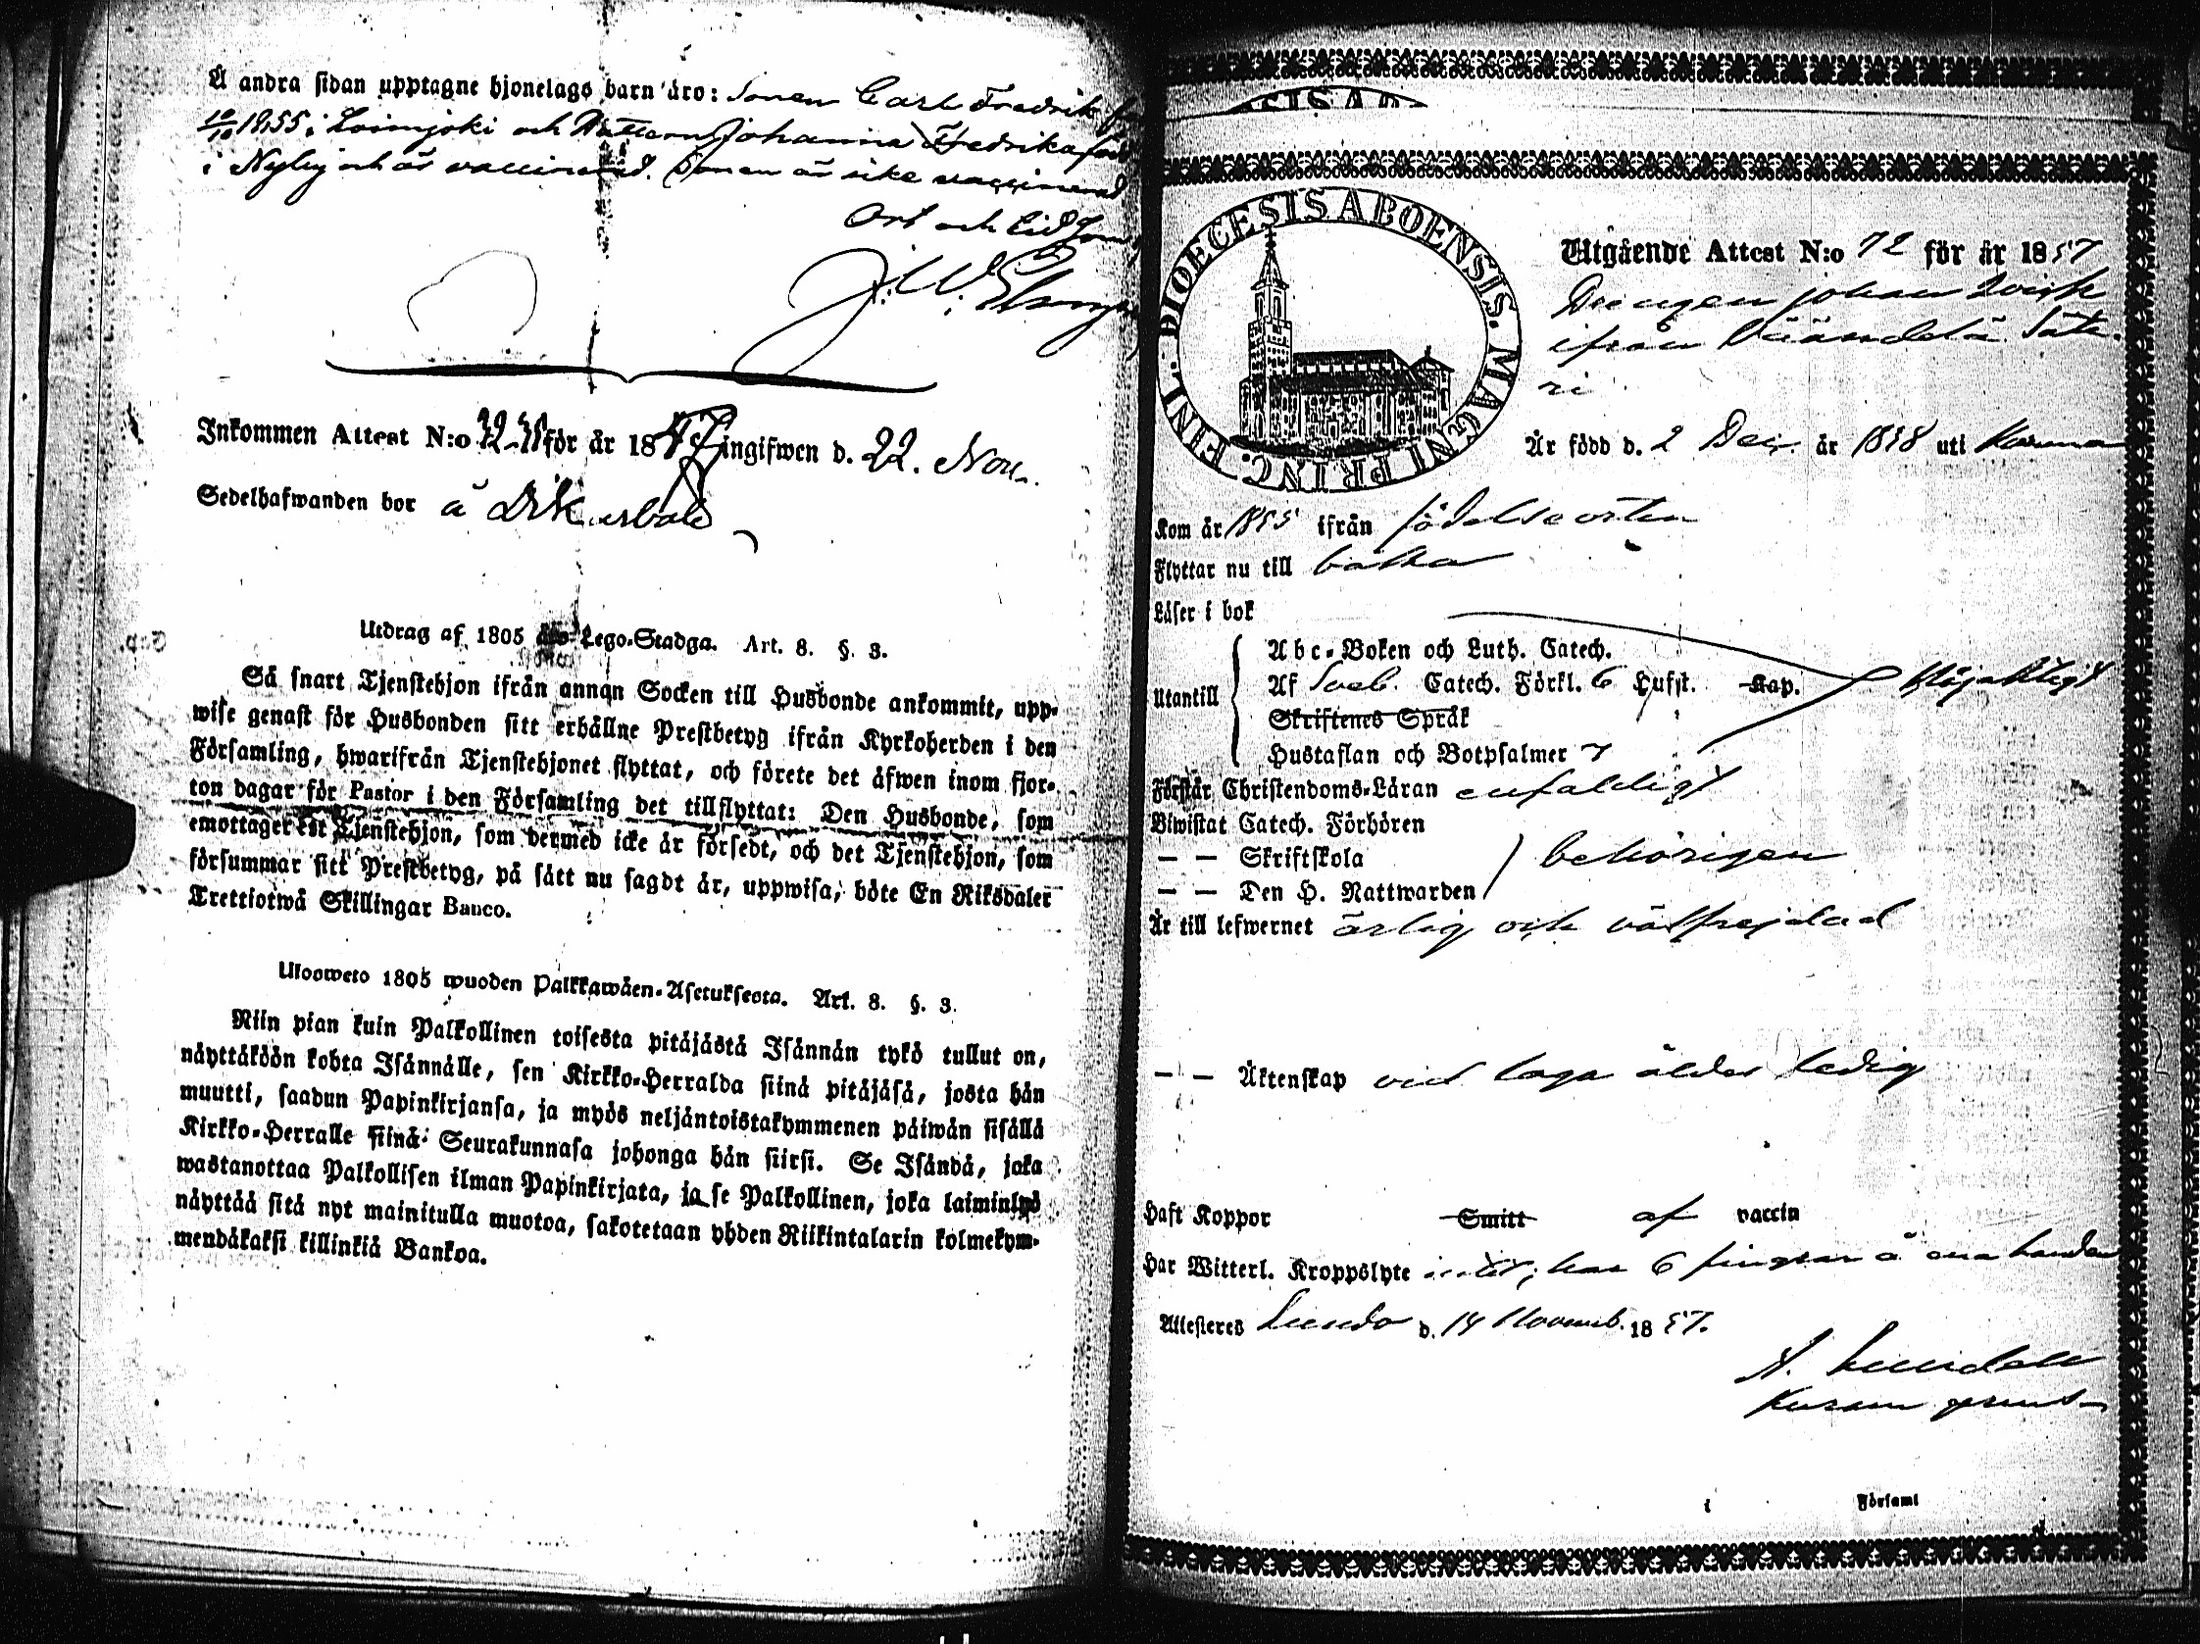 Å andra sidan upptagne hjonelags barn äro: Sonen Carl Fredrik
1855 i Loimjoki och Johanna Fredrika född
i Nyby och är vaccinerad. Sonen är icke vaccinerad
Ort och tid som
J. W.
Inkommen Attest N:o för år 18 ingifwen d. 22. Nov.
Sedelhafwanden bor å
Utdrag af 1805 Lego-Stadga. Art. 8. §. 3.
Så snart Tjenstehjon ifrån annan Socken till Husbonde ankommit, upp-
wise genast för Husbonden sitt erhållne Prestbetyg ifrån Kyrkoherden i den
Församling, hwarifrån Tjenstehjonet flyttat, och förete det äfwen inom fjor-
ton dagar för Pastor i den Församling det tillflyttat: Den Husbonde, som
emottager ett Tjenstehjon, som dermed icke är försedt, och det Tjenstehjon, som
försummar sitt Prestbetyg, på sätt nu sagdt är, uppwisa, böte En Riksdaler
Trettiotwå Skillingar Banco.
Ulosweto 1805 wuoden Palkkawäen-Asetuksesta. Art. 8. §. 3.
Niin pian kuin Palkollinen toisesta pitäjästä Isännän tykö tullut on,
näyttäköön kohta Isännälle, sen Kirkko-Herralda siinä pitäjäsä, josta hän
muutti, saadun Papinkirjansa, ja myös neljäntoistakymmenen päiwän sisällä
Kirkko-Herralle siinä Seurakunnasa johonga hän siirsi. Se Isändä, joka
wastanottaa Palkollisen ilman Papinkirjata, ja se Palkollinen, joka laiminlyö
näyttää sitä nyt mainitulla muotoa, sakotetaan yhden Riikintalarin kolmekym-
mendäkaksi killinkiä Bankoa.
DIOECESIS ABOENSIS. MAGNI PRINC. FINL.
Utgående Attest N:o 72 för år 1857
Drengen Johan
ifrån Säte-
ri
Är född d. 2 Dec. år 1838 uti
Kom år 1855 ifrån födelseorten
Flyttar nu till
Läser i bok
Utantill
Abc-Boken och Luth. Catech.
Af Sveb. Catech. Förkl. 6 Hufst. Kap.
Skriftenes Språk
Hustaflan och Botpsalmer 7
Förstår Christendoms-Läran enfaldigt
Biwistat Catech. Förhören
— — Skriftskola behörigen
— — Den H. Nattwarden
Är till lefwernet ärlig och välfrejdad
— — Äktenskap vid laga ålder ledig
Haft Koppor Smitt af vaccin
Har Witterl. Kroppslyte intet, har 6 fingrar å ena handen
Attesteres Lundo d. 14 Novemb. 1857.
A. Lindell
Församl